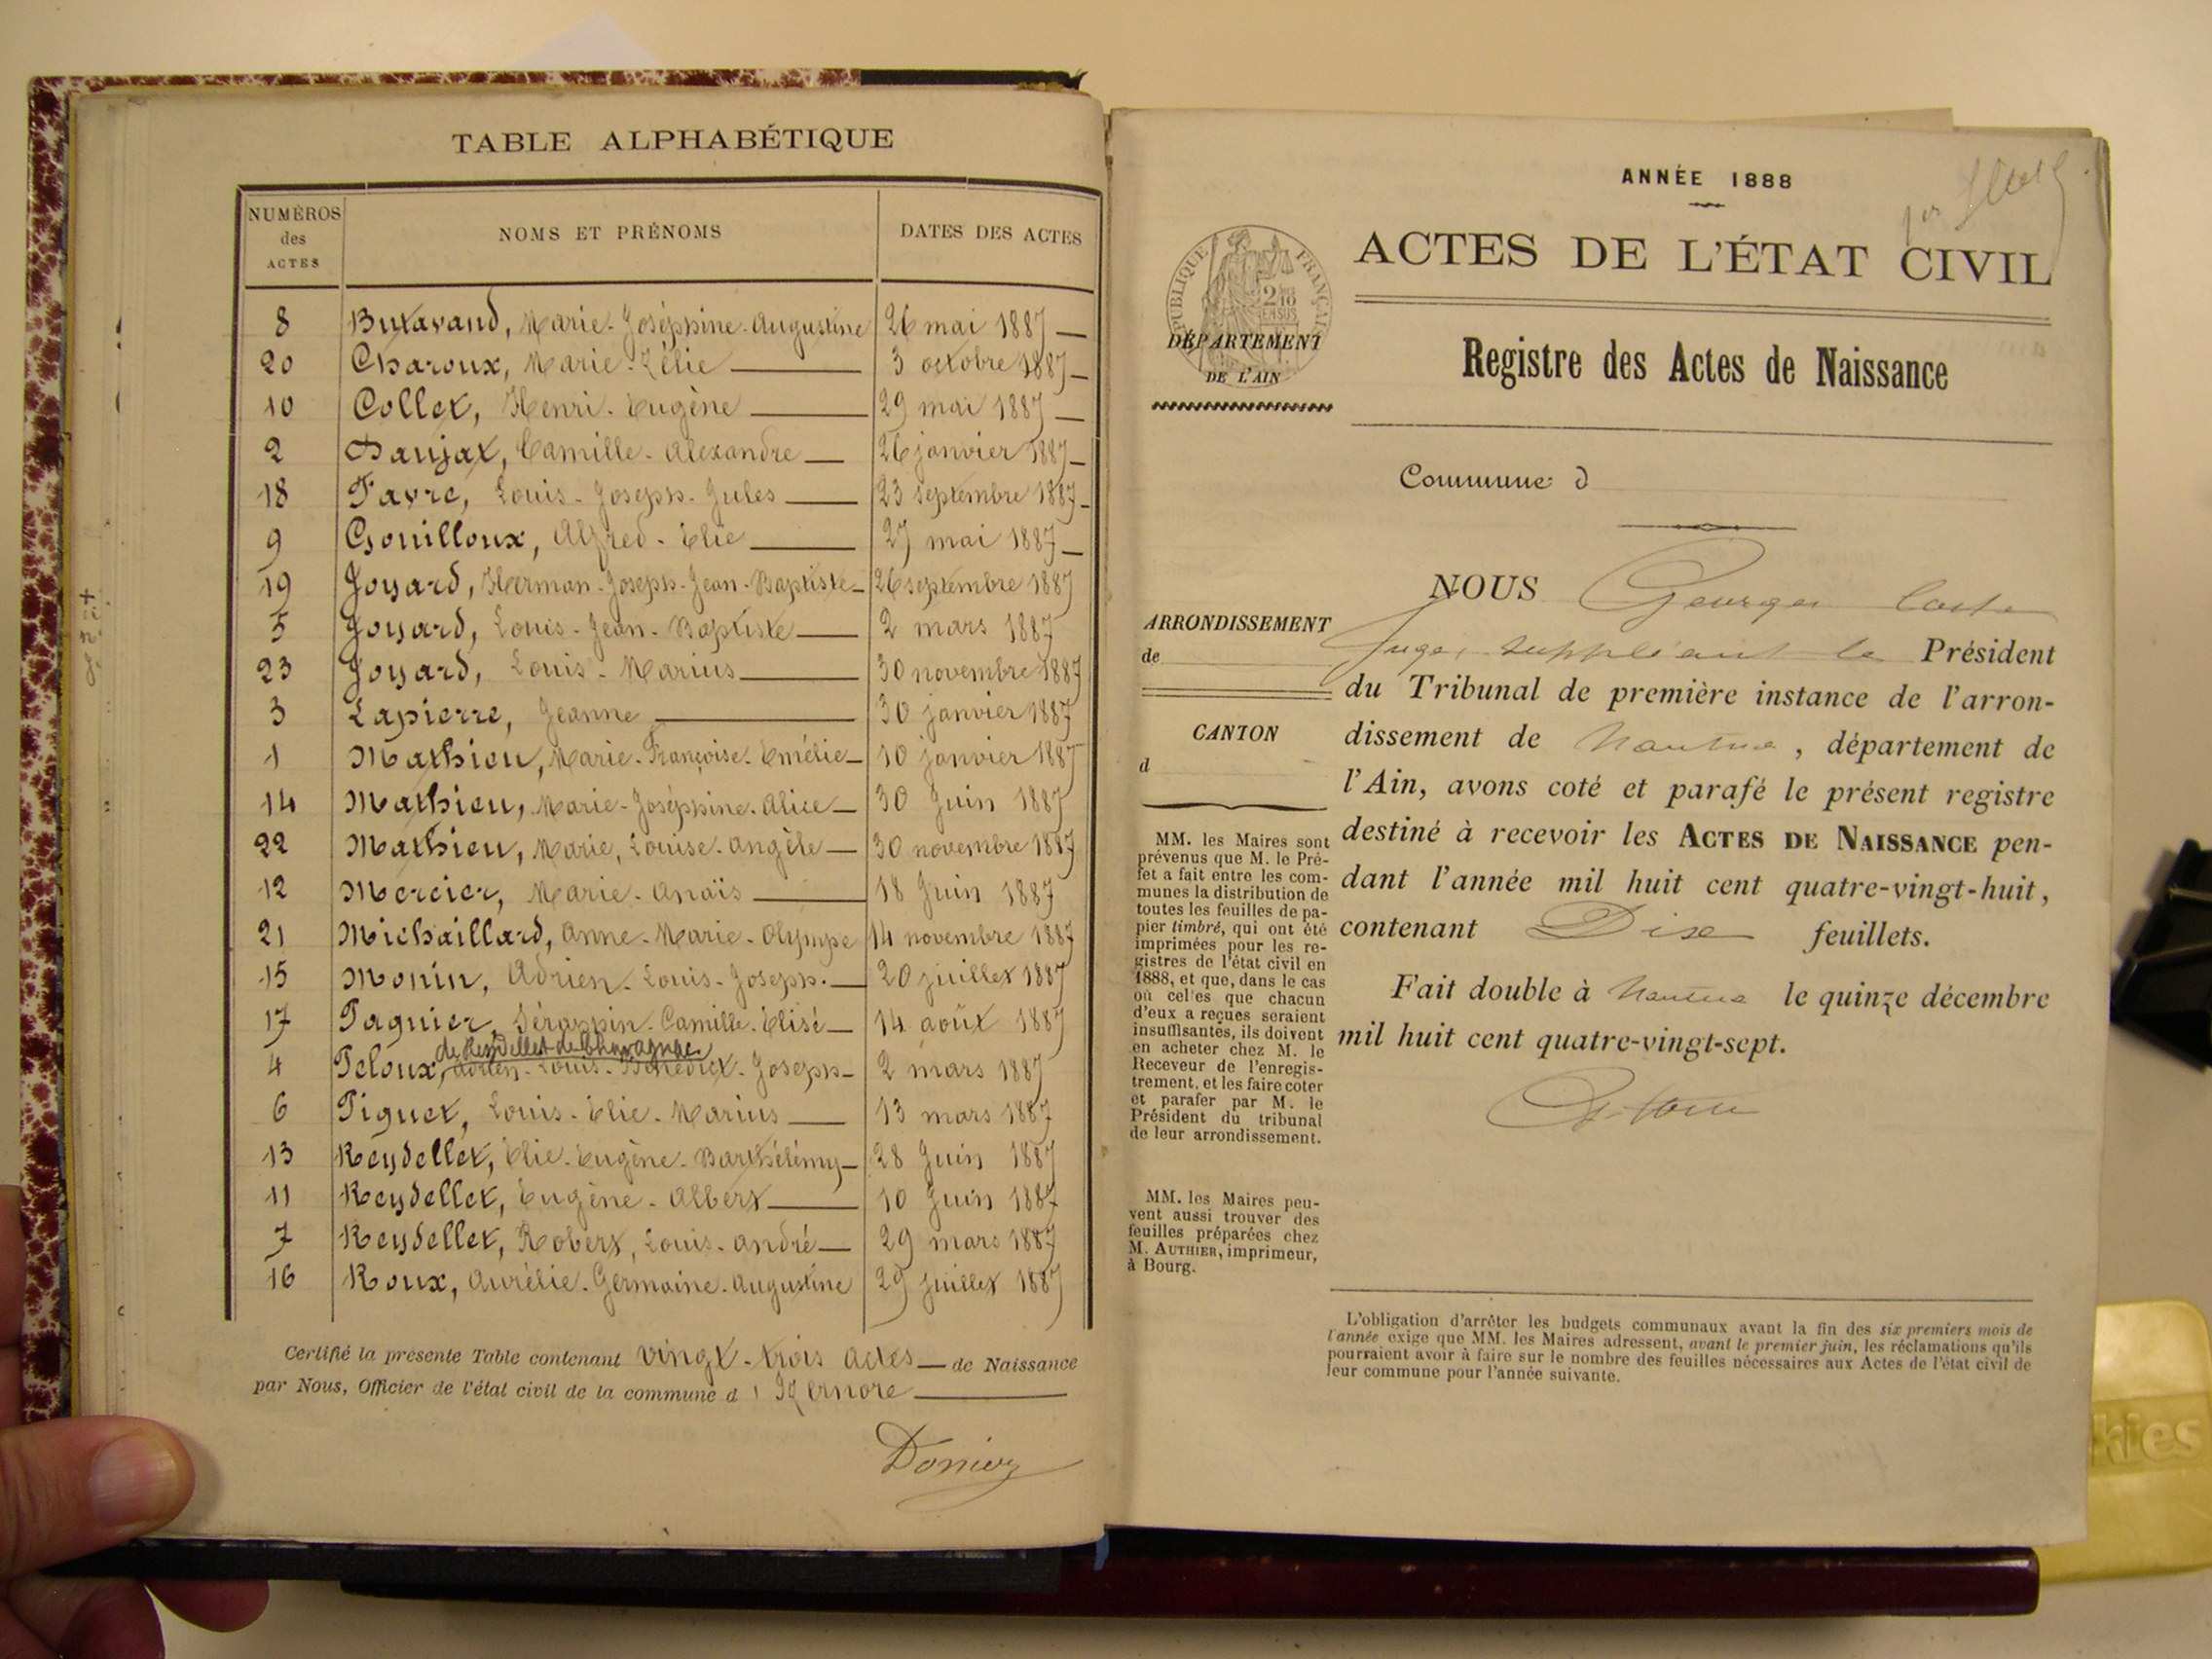 TABLE ALPHABÉTIQUE
NUMÉROS des ACTES NOMS ET PRÉNOMS DATES DES ACTES
8 Butavand, Marie-Joséphine-Augustine 26 mai 1887
20 Charoux, Marie-Zélie 3 octobre 1887
10 Collet, Henri-Eugène 29 mai 1887
2 Daujat, Camille-Alexandre 26 janvier 1887
18 Favre, Louis-Joseph-Jules 23 septembre 1887
9 Gouilloux, Alfred-Elie 27 mai 1887
19 Joyard, Herman-Joseph-Jean-Baptiste 26 septembre 1887
5 Joyard, Louis-Jean-Baptiste 2 mars 1887
23 Joyard, Louis-Marius 30 novembre 1887
3 Lapierre, Jeanne 30 janvier 1887
1 Mathieu, Marie-Françoise-Emélie 10 janvier 1887
14 Mathieu, Marie-Joséphine-Alice 30 Juin 1887
22 Mathieu, Marie, Louise-Angèle 30 novembre 1887
12 Mercier, Marie-Anaïs 18 Juin 1887
21 Michaillard, Anne-Marie-Olympe 14 novembre 1887
15 Monin, Adrien-Louis-Joseph 20 juillet 1887
17 Paquier, Séraphin-Camille-Elisé 14 août 1887
de Reydellet de Chavagnac
4 Peloux, Adrien-Louis-Bénédict-Joseph 2 mars 1887
6 Piquet, Louis-Elie-Marius 13 mars 1887
13 Reydellet, Elie-Eugène-Barthélémy 28 Juin 1887
11 Reydellet, Eugène-Albert 10 Juin 1887
7 Reydellet, Robert, Louis-André 29 mars 1887
16 Roux, Aurélie-Germaine-Augustine 29 juillet 1887
Certifié la présente Table contenant vingt-trois actes de Naissance
par Nous, Officier de l'état civil de la commune d'Izernore
ANNÉE 1888
ACTES DE L'ÉTAT CIVIL
RÉPUBLIQUE FRANÇAISE
DÉPARTEMENT
DE L'AIN
Registre des Actes de Naissance
Commune d
ARRONDISSEMENT
de
CANTON
d
NOUS Georges Coste
Juge suppléant le Président
du Tribunal de première instance de l'arron-
dissement de Nantua, département de
l'Ain, avons coté et parafé le présent registre
destiné à recevoir les ACTES DE NAISSANCE pen-
dant l'année mil huit cent quatre-vingt-huit,
contenant Dix feuillets.
Fait double à Nantua le quinze décembre
mil huit cent quatre-vingt-sept.
MM. les Maires sont
prévenus que M. le Pré-
fet a fait entre les com-
munes la distribution de
toutes les feuilles de pa-
pier timbré, qui ont été
imprimées pour les re-
gistres de l'état civil en
1888, et que, dans le cas
où celles que chacun
d'eux a reçues seraient
insuffisantes, ils doivent
en acheter chez M. le
Receveur de l'enregis-
trement, et les faire coter
et parafer par M. le
Président du tribunal
de leur arrondissement.
MM. les Maires peu-
vent aussi trouver des
feuilles préparées chez
M. AUTHIER, imprimeur,
à Bourg.
L'obligation d'arrêter les budgets communaux avant la fin des six premiers mois de
l'année exige que MM. les Maires adressent, avant le premier juin, les réclamations qu'ils
pourraient avoir à faire sur le nombre des feuilles nécessaires aux Actes de l'état civil de
leur commune pour l'année suivante.